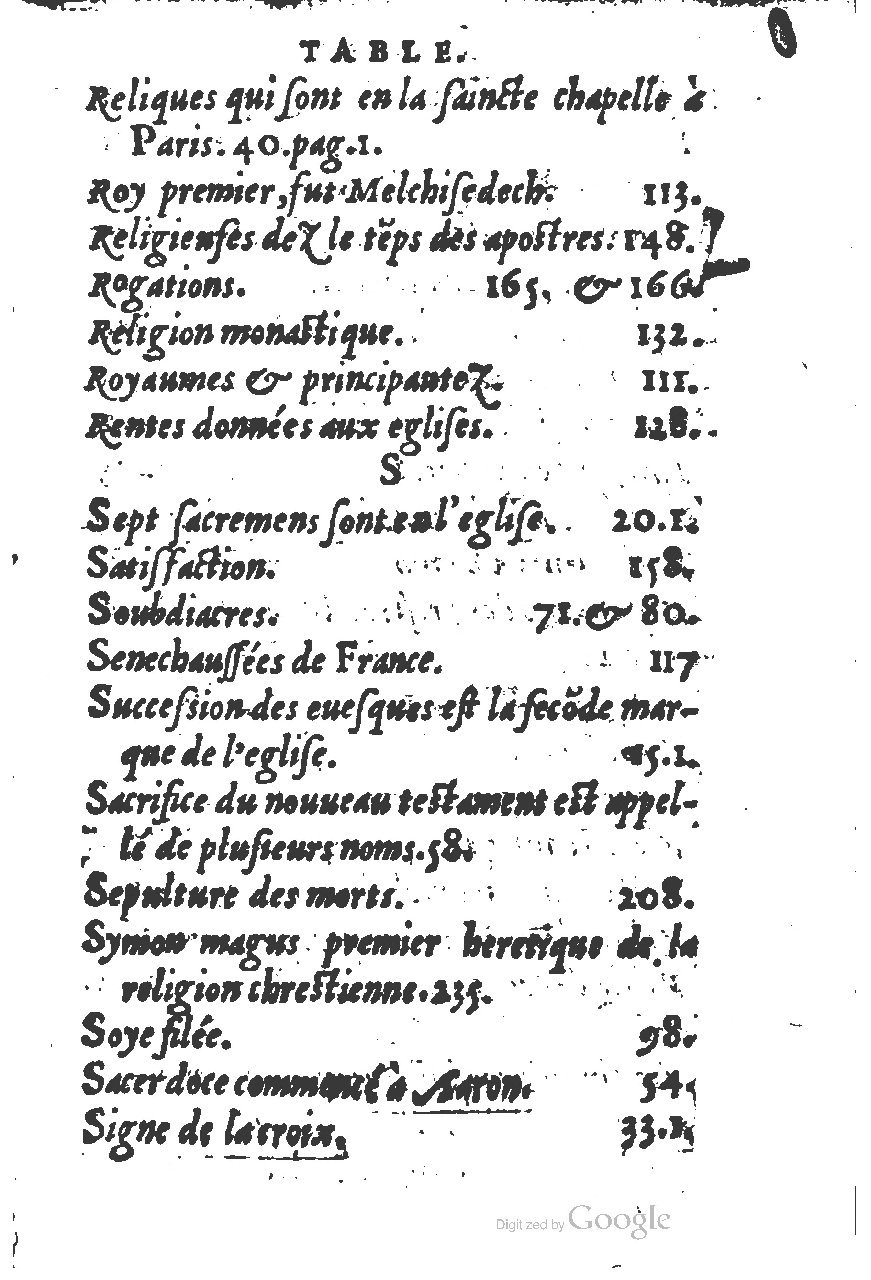 TABLE.
Reliques qui ſont en la ſaincte chapelle à
Paris. 40. pag. 1.
Roy premier, fut Melchiſedech. 113.
Religieuſes dez le tẽps des apoſtres. 148.
Rogations. 165. & 166.
Religion monaſtique. 132.
Royaumes & principautez. 111.
Rentes données aux egliſes. 128.
S
Sept ſacremens ſont en l'egliſe. 20.1.
Satiſfaction. 158.
Soubdiacres. 71. & 80.
Senechauſſées de France. 117
Succeſsion des eueſques eſt la ſecõde mar-
que de l'egliſe. 15.1.
Sacrifice du nouueau teſtament eſt appel-
lé de pluſieurs noms. 58.
Sepulture des morts. 208.
Symon magus premier heretique de la
religion chreſtienne. 235.
Soye filée. 98.
Sacerdoce commencé à Aaron. 54.
Signe de la croix. 33.1.
Digitized by Google